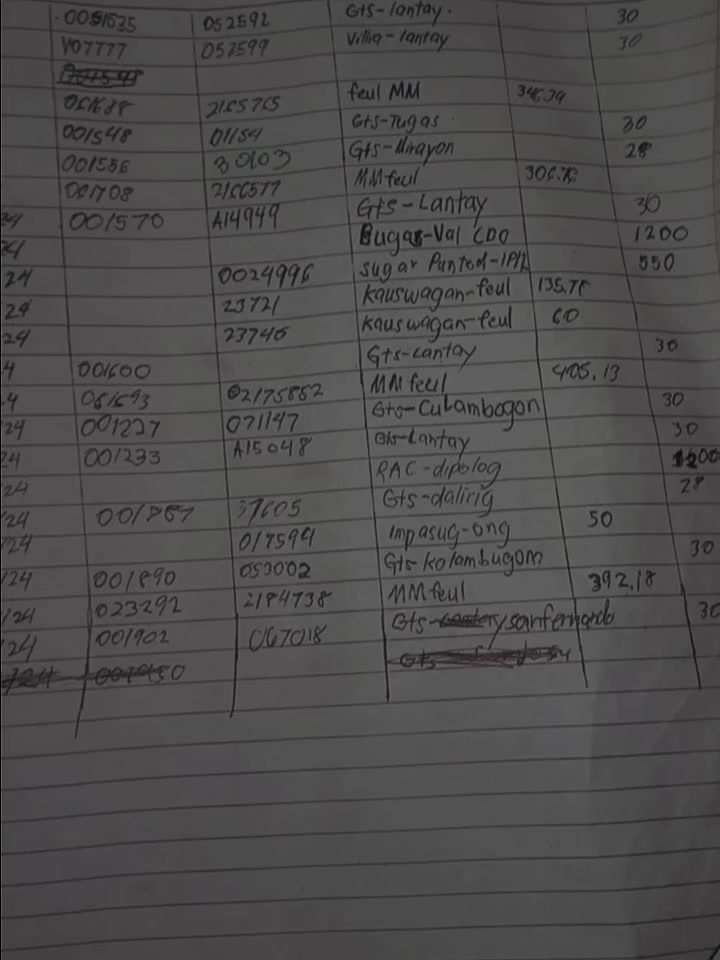 0051535 052592 Gts-lantay. 30
V07777 052599 Villia-lantay 30
061688 2165765 feul MM 346.79
001548 01154 Gts-Tugas 30
001556 30103 Gts-Mirayon 28
001708 2166577 MM feul 306.78
24 001570 A14949 Gts-Lantay 30
24 Bugas-Val CDO 1200
24 0024996 sugar Puntod- 550
24 23721 Kauswagan-feul 135.78
24 23746 Kauswagan-feul 60
4 001600 Gts-Lantay 30
4 061693 02175862 MM feul 405.13
24 001227 071147 Gts-Culambogon 30
24 001233 A15048 Gts-Lantay 30
24 RAC-dipolog
/24 001867 37605 Gts-dalirig 28
/24 017594 impasug-ong 50
/24 001890 053002 Gts-kolambugom 30
/24 023292 2184738 MM feul 392.18
24 001902 067018 Gts- sanfernando 30